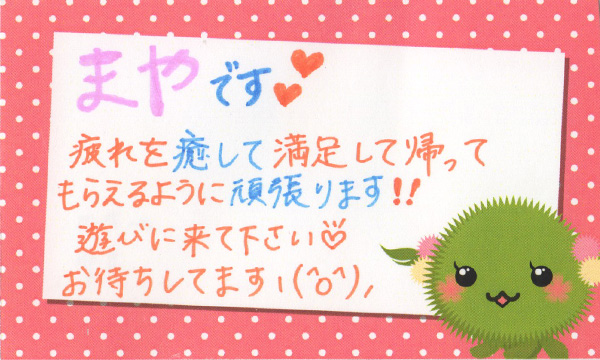 まやです💕
疲れを癒して満足して帰って
もらえるように頑張ります!!
遊びに来て下さい♡
お待ちしてます\(^o^)/